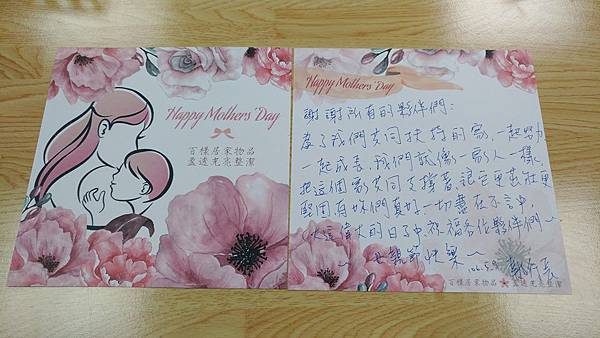 Happy Mothers' Day
百樣居家物品
盈透光亮整潔
Happy Mothers' Day
謝謝所有的夥伴們:
為了我們共同扶持的家,一起努力
一起成長,我們就像一家人一樣,
把這個家共同支撐著,讓它更茁壯更
堅固,有妳們真好一切盡在不言中,
在這偉大的日子中祝福各位夥伴們~
~母親節快樂~
百樣居家物品 盈透光亮整潔